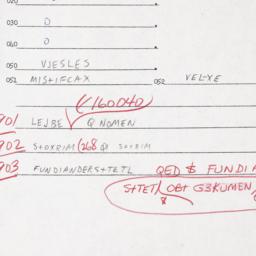 020
030 D
040 O
050 VJESLES
052 MISTIFCAX 052 VELXE
(160040)
901 LEJBE Q NOMEN
902 STOXRIM (268 Q) SOXRIM
903 FUNDIANDERSTETL QED $ FUNDIA
STET/ OBT G3KUMEN,